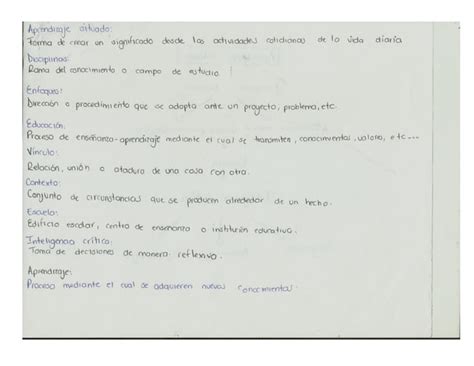 Aprendizaje situado:
Forma de crear un significado desde las actividades cotidianas de la vida diaria
Disciplinas:
Rama del conocimiento o campo de estudio.
Enfoques:
Dirección o procedimiento que se adopta ante un proyecto, problema, etc.
Educación:
Proceso de enseñanza-aprendizaje mediante el cual se transmiten, conocimientos, valores, etc...
Vínculo:
Relación, unión o atadura de una cosa con otra.
Contexto:
Conjunto de circunstancias que se producen alrededor de un hecho.
Escuela:
Edificio escolar, centro de enseñanza o institución educativa.
Inteligencia crítica:
Toma de decisiones de manera reflexiva.
Aprendizaje:
Proceso mediante el cual se adquieren nuevos conocimientos.